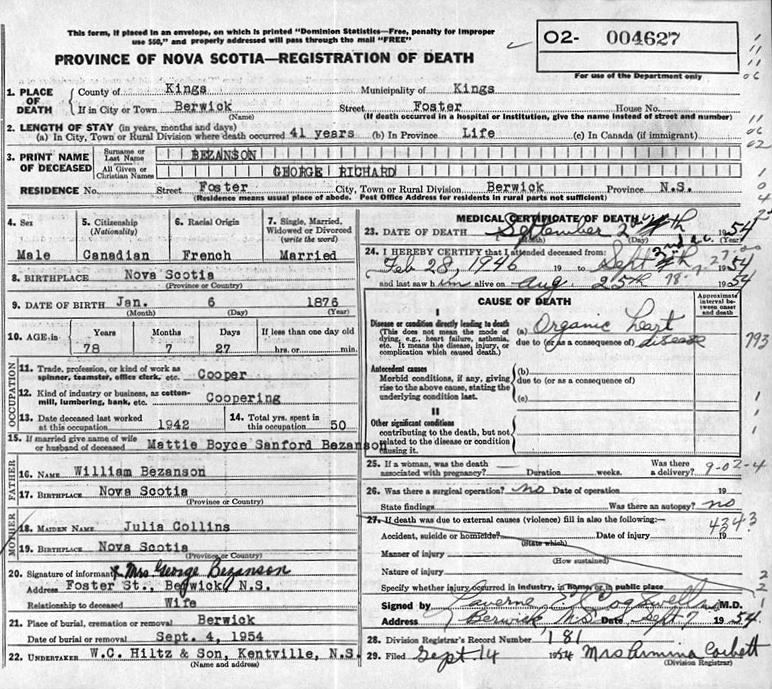 This form, if placed in an envelope, on which is printed "Dominion Statistics—Free, penalty for improper
use $50," and properly addressed will pass through the mail "FREE"
O2- 004627
For use of the Department only
PROVINCE OF NOVA SCOTIA—REGISTRATION OF DEATH
1. PLACE OF DEATH
County of Kings Municipality of Kings
If in City or Town Berwick Street Foster House No.
(Name) (If death occurred in a hospital or institution, give the name instead of street and number)
2. LENGTH OF STAY (in years, months and days)
(a) In City, Town or Rural Division where death occurred 41 years (b) In Province Life (c) In Canada (if immigrant)
3. PRINT NAME OF DECEASED
Surname or Last Name BEZANSON
All Given or Christian Names GEORGE RICHARD
RESIDENCE No. Street Foster City, Town or Rural Division Berwick Province N.S.
(Residence means usual place of abode. Post Office Address for residents in rural parts not sufficient)
4. Sex Male
5. Citizenship (Nationality) Canadian
6. Racial Origin French
7. Single, Married, Widowed or Divorced (write the word) Married
8. BIRTHPLACE Nova Scotia
(Province or Country)
9. DATE OF BIRTH Jan. 6 1876
(Month) (Day) (Year)
10. AGE in Years Months Days If less than one day old
78 7 27 hrs. or min.
OCCUPATION
11. Trade, profession, or kind of work as spinner, teamster, office clerk, etc. Cooper
12. Kind of industry or business, as cotton-mill, lumbering, bank, etc. Coopering
13. Date deceased last worked at this occupation 1942
14. Total yrs. spent in this occupation 50
15. If married give name of wife or husband of deceased Mattie Boyce Sanford Bezanson
FATHER
16. NAME William Bezanson
17. BIRTHPLACE Nova Scotia
(Province or Country)
MOTHER
18. MAIDEN NAME Julia Collins
19. BIRTHPLACE Nova Scotia
(Province or Country)
20. Signature of informant Mrs. George Bezanson
Address Foster St., Berwick, N.S.
Relationship to deceased Wife
21. Place of burial, cremation or removal Berwick
Date of burial or removal Sept. 4, 1954
22. UNDERTAKER W.C. Hiltz & Son, Kentville, N.S.
(Name and address)
MEDICAL CERTIFICATE OF DEATH
23. DATE OF DEATH September 2 1954
(Month) (Day) (Year)
24. I HEREBY CERTIFY that I attended deceased from:
Feb 28, 1946 to Sept 2nd 1954
and last saw him alive on Aug 25th 1954
CAUSE OF DEATH
Approximate interval between onset and death
I
Disease or condition directly leading to death
(This does not mean the mode of dying, e.g., heart failure, asthenia, etc. It means the disease, injury, or complication which caused death.)
(a) Organic heart disease
due to (or as a consequence of)
Antecedent causes
Morbid conditions, if any, giving rise to the above cause, stating the underlying condition last.
(b)
due to (or as a consequence of)
(c)
II
Other significant conditions
contributing to the death, but not related to the disease or condition causing it.
793
25. If a woman, was the death associated with pregnancy? Duration weeks. Was there a delivery?
9-02-4
26. Was there a surgical operation? no Date of operation 19
State findings Was there an autopsy? no
27. If death was due to external causes (violence) fill in also the following:—
4343
Accident, suicide or homicide? Date of injury 19
(State which)
Manner of injury
(How sustained)
Nature of injury
Specify whether injury occurred in industry, in home, or in public place
Signed by Laverne M.D.
Address Berwick NS Date Sept 7 1954
28. Division Registrar's Record Number 181
29. Filed Sept 14 1954 Mrs Armina Corbett
(Division Registrar)